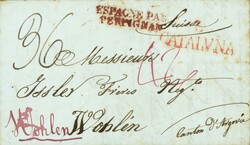 ESPAGNE PAR
PERPIGNAN
Suisse
CATALVNA
36
Messieurs
Issler Frères Negts.
Wohlen Wohlen
Canton d'Argovie